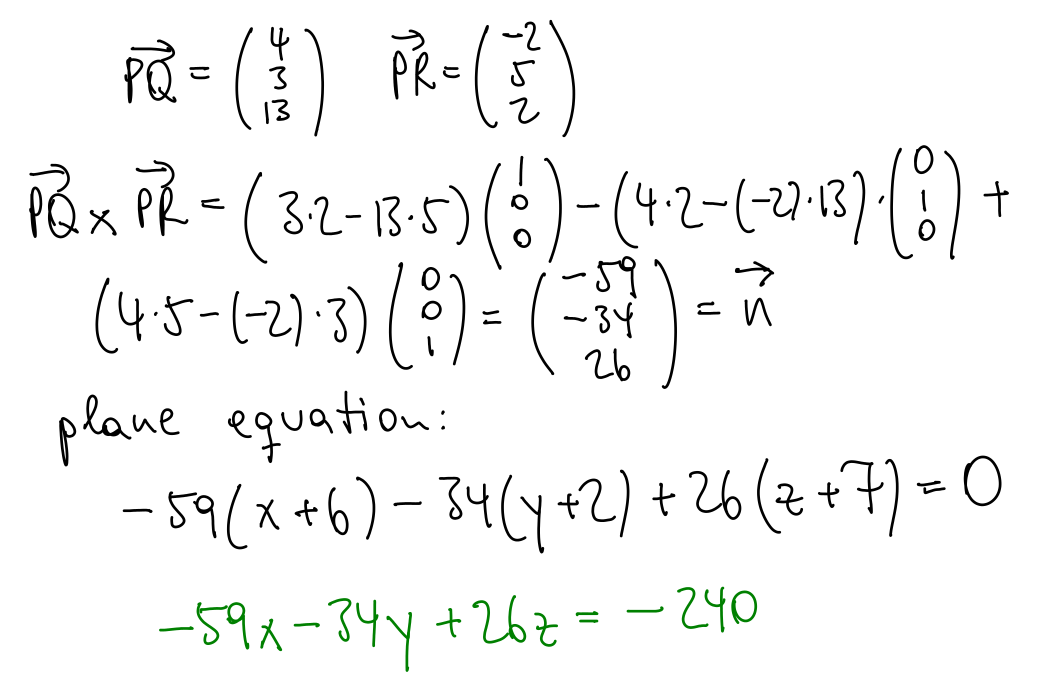 PQ⃗ = (4 3 13) PR⃗ = (-2 5 2)
PQ⃗ × PR⃗ = (3·2-13·5)(1 0 0) - (4·2-(-2)·13)·(0 1 0) +
(4·5-(-2)·3)(0 0 1) = (-59 -34 26) = n⃗
plane equation:
-59(x+6) - 34(y+2) + 26(z+7) = 0
-59x - 34y + 26z = -240